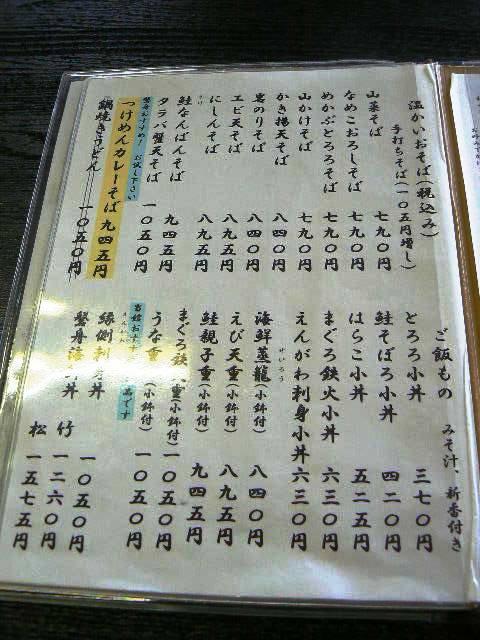 温かいおそば(税込み)
手打ちそば(一〇五円増し)
山菜そば 七九〇円
なめこおろしそば 七九〇円
めかぶとろろそば 七九〇円
山かけそば 七九〇円
かき揚天そば 八四〇円
岩のりそば 八四〇円
エビ天そば 八九五円
にしんそば 八九五円
鮭なんばんそば 九四五円
タラバ蟹天そば 一〇五〇円
お試し下さい
つけめんカレーそば 九四五円
鍋焼きうどん 一〇五〇円
ご飯もの
みそ汁、新香付き
とろろ小丼 三七〇円
鮭そぼろ小丼 四二〇円
はらこ小丼 五二五円
まぐろ鉄火小丼 六三〇円
えんがわ刺身小丼 六三〇円
海鮮蒸籠(小鉢付) 八四〇円
せいろう
えび天重(小鉢付) 八九五円
鮭親子重(小鉢付) 九四五円
まぐろ鉄 重(小鉢付) 一〇五〇円
うな重(小鉢付) 一〇五〇円
です
縁側刺 丼 一〇五〇円
蟹舟 丼 竹 一二六〇円
松 一五七五円